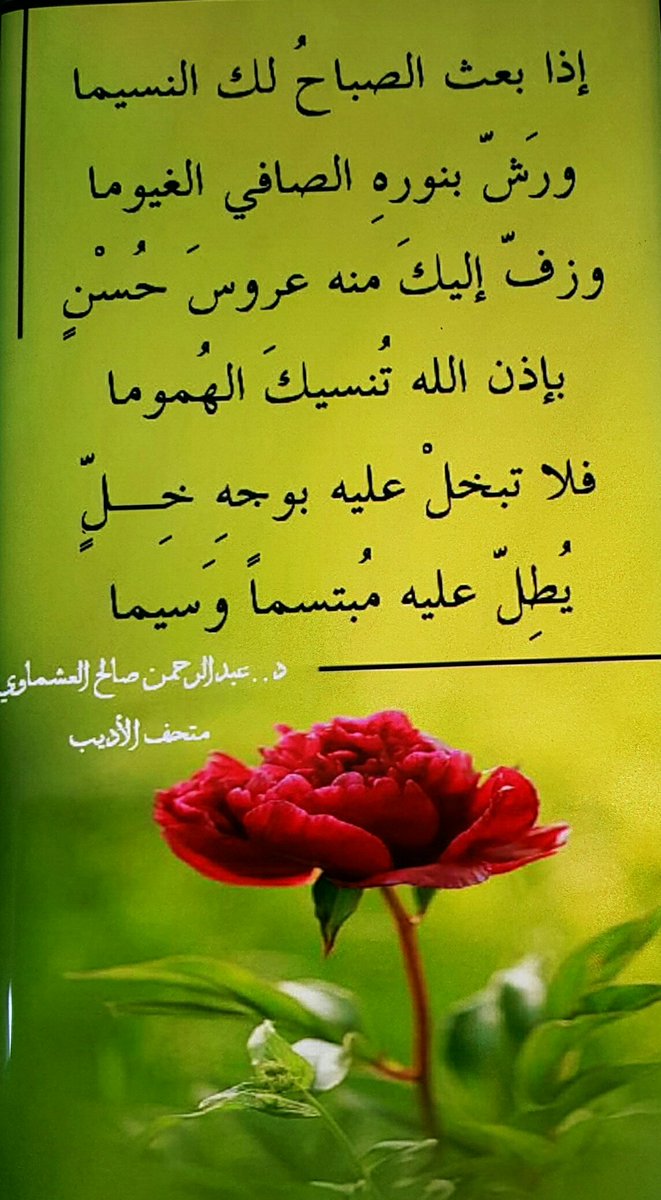 إذا بعث الصباحُ لك النسيما
ورَشّ بنورهِ الصافي الغيوما
وزفّ إليكَ منه عروسَ حُسْنٍ
بإذن الله تُنسيكَ الهُموما
فلا تبخلْ عليه بوجهِ خِـــلٍّ
يُطِلّ عليه مُبتسماً وَسيما
د..عبدالرحمن صالح العشماوي
متحف الأديب